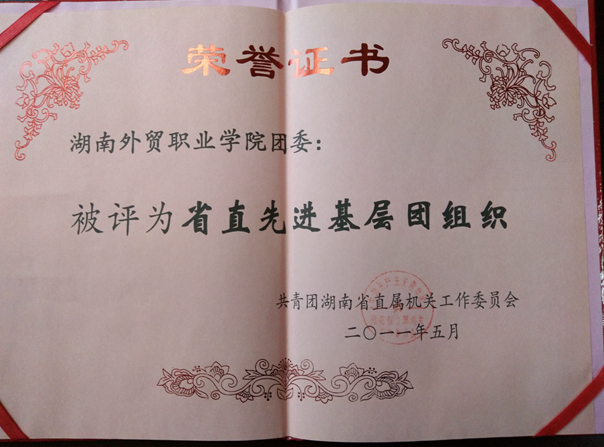 荣誉证书
湖南外贸职业学院团委：
被评为省直先进基层团组织
共青团湖南省直属机关工作委员会
二〇一一年五月